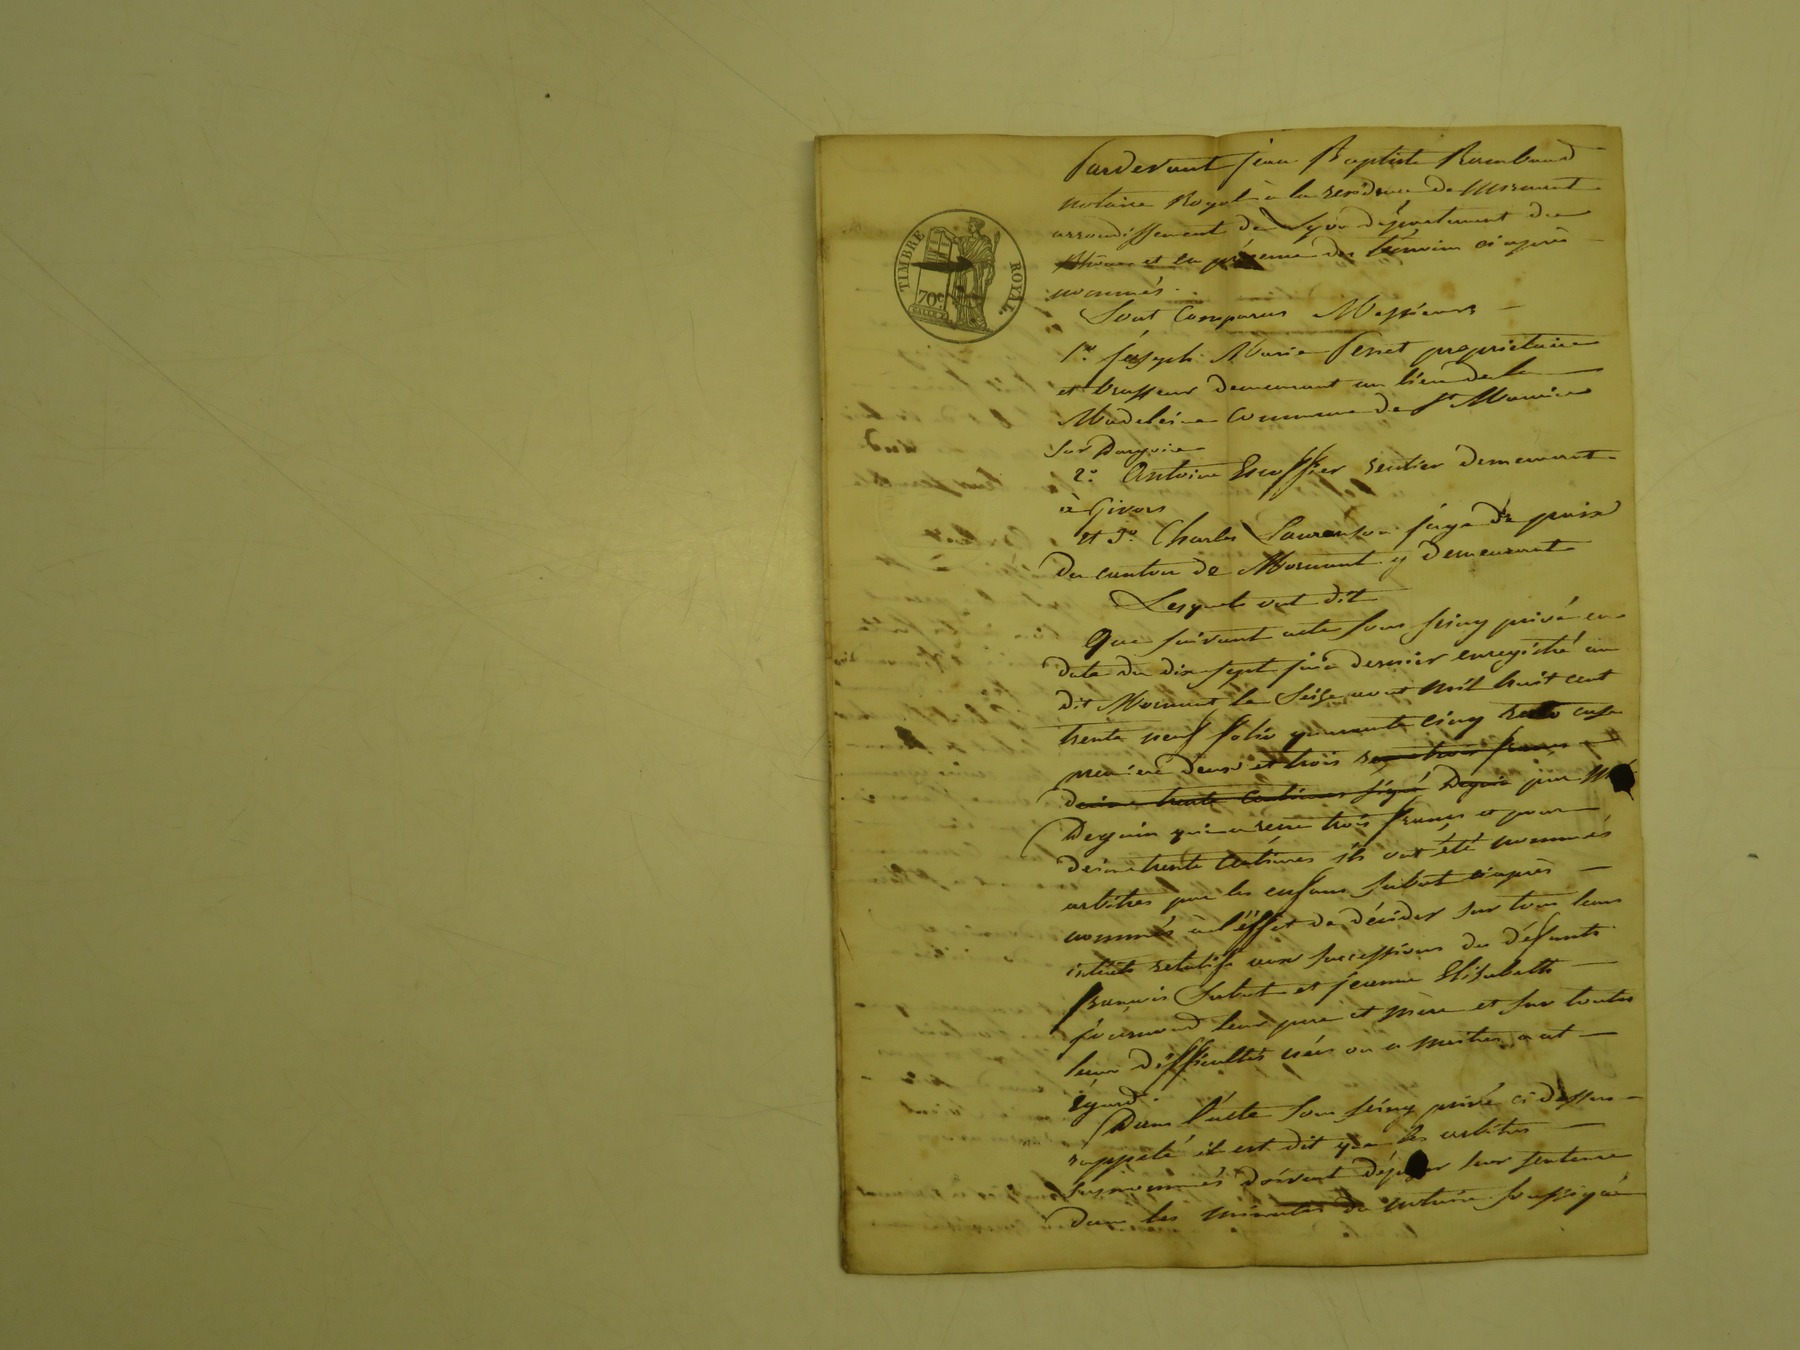 TIMBRE ROYAL.
70c.
Pardevant jean Baptiste Rambaud
notaire Royal à la residence de Mornant
arrondissement de Lyon département du
Rhône et en présence des témoins ciaprès
nommés.
Sont Comparus Messieurs
1o. Joseph Marie Perret propriétaire
et brasseur demeurant au lieu de la
Madeleine Commune de St Maurice
sur Dargoire
2o. Antoine Escoffier rentier demeurant
à Givors
et 3o. Charles Laurenson juge de paix
du canton de Mornant y demeurant
Lesquels ont dit
Que suivant acte sous seing privé en
date du dix sept juin dernier enregistré au
dit Mornant le Seize aout mil huit cent
trente neuf folio quarante cinq recto case
première deux et trois reçu trois francs
décime trente centimes signé Deguin par Mr
Deguin qui a reçu trois francs et pour
décime trente centimes ils ont été nommés
arbitres par les enfans Subot ciaprès
nommés à l'éffet de décider sur tous leurs
intérêts relatifs aux successions des défunts
François Subot et jeanne Elisabeth
leur père et mère et sur toutes
leurs difficultés nées ou a naitre a cet
égard.
Dans l'acte sous seing privé ci dessus
rappelé il est dit que les arbitres
susnommés doivent déposer leur sentence
dans les minutes du notaire soussigné